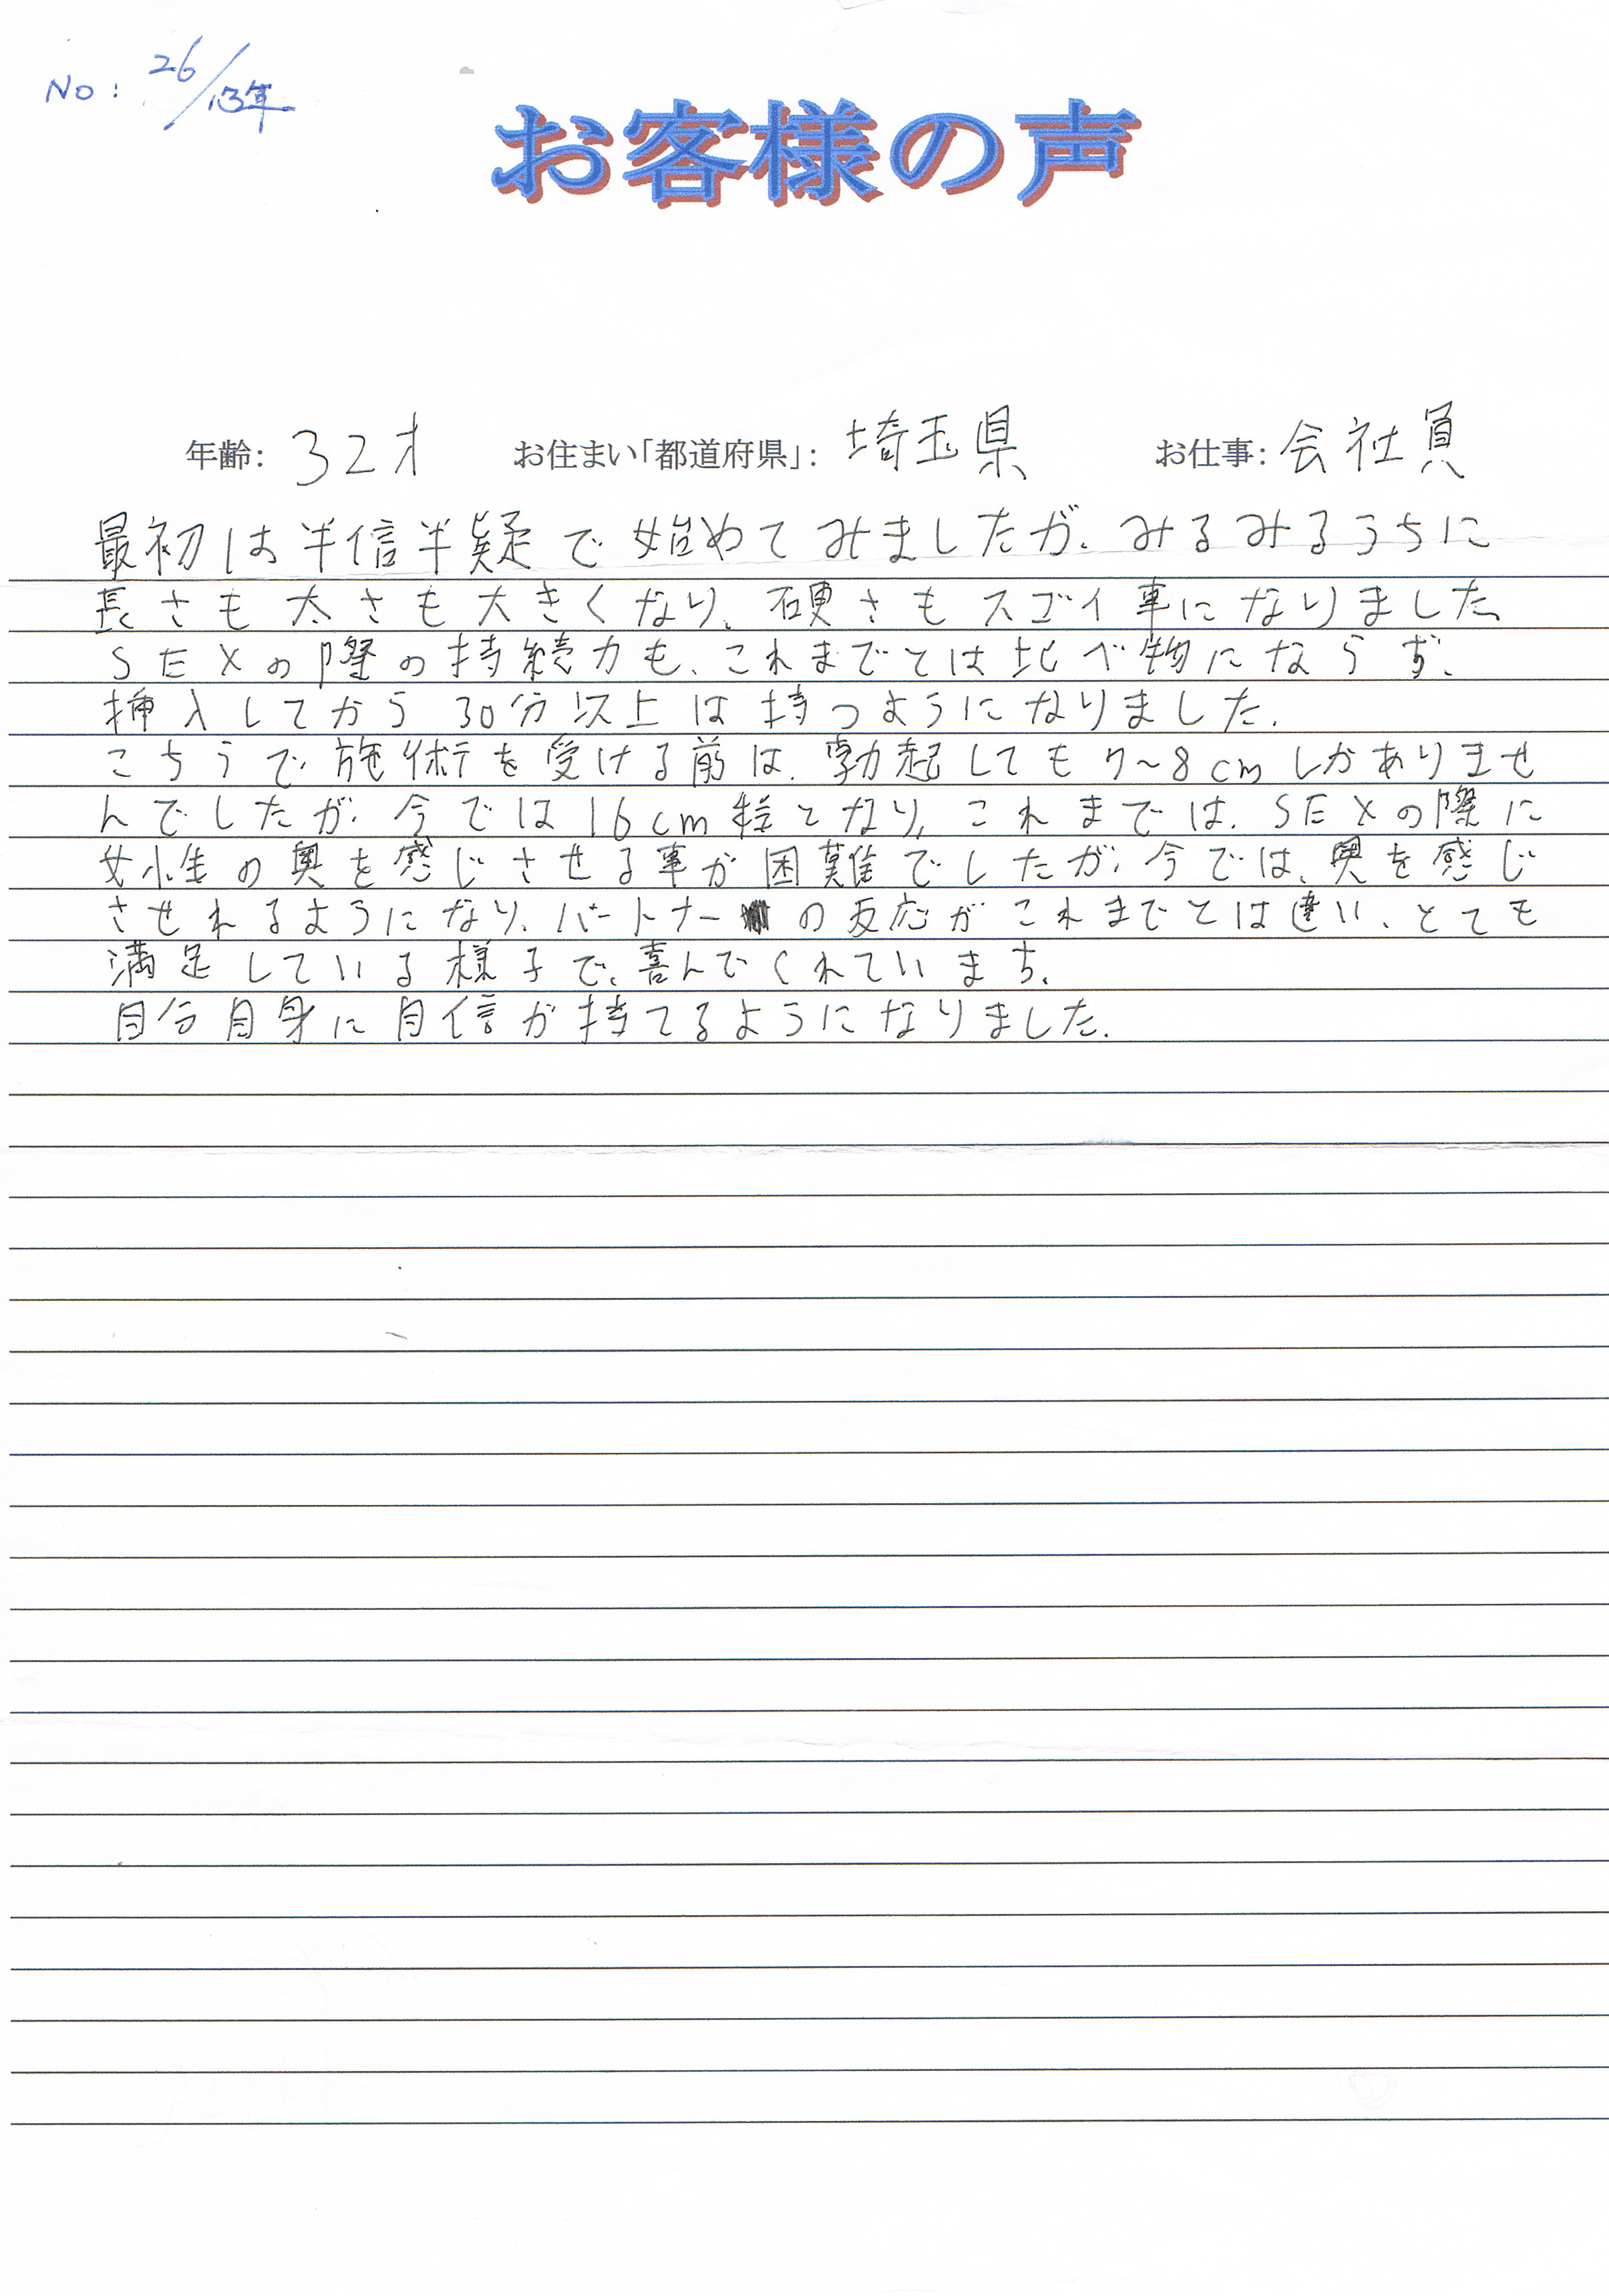 No: 26/13年
お客様の声
年齢: 32才 お住まい「都道府県」: 埼玉県 お仕事: 会社員
最初は半信半疑で始めてみましたが、みるみるうちに
長さも太さも大きくなり、硬さもスゴイ事になりました。
SEXの際の持続力も、これまでとは比べ物にならず、
挿入してから30分以上は持つようになりました。
こちらで施術を受ける前は、勃起しても7~8cmしかありませ
んでしたが、今では16cm程となり、これまでは、SEXの際に
女性の奥を感じさせる事が困難でしたが、今では、奥を感じ
させれるようになり、パートナーの反応がこれまでとは違い、とても
満足している様子で、喜んでくれていまち。
自分自身に自信が持てるようになりました。